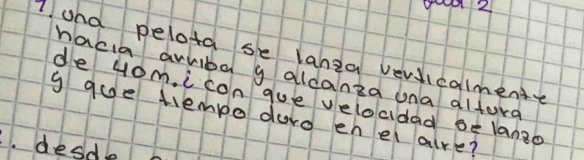 1. una pelota se lanza verticalmente
hacia arriba y alcanza una altura
de 40m. ¿ con que velocidad se lanzo
y que tiempo duro en el aire?
desde